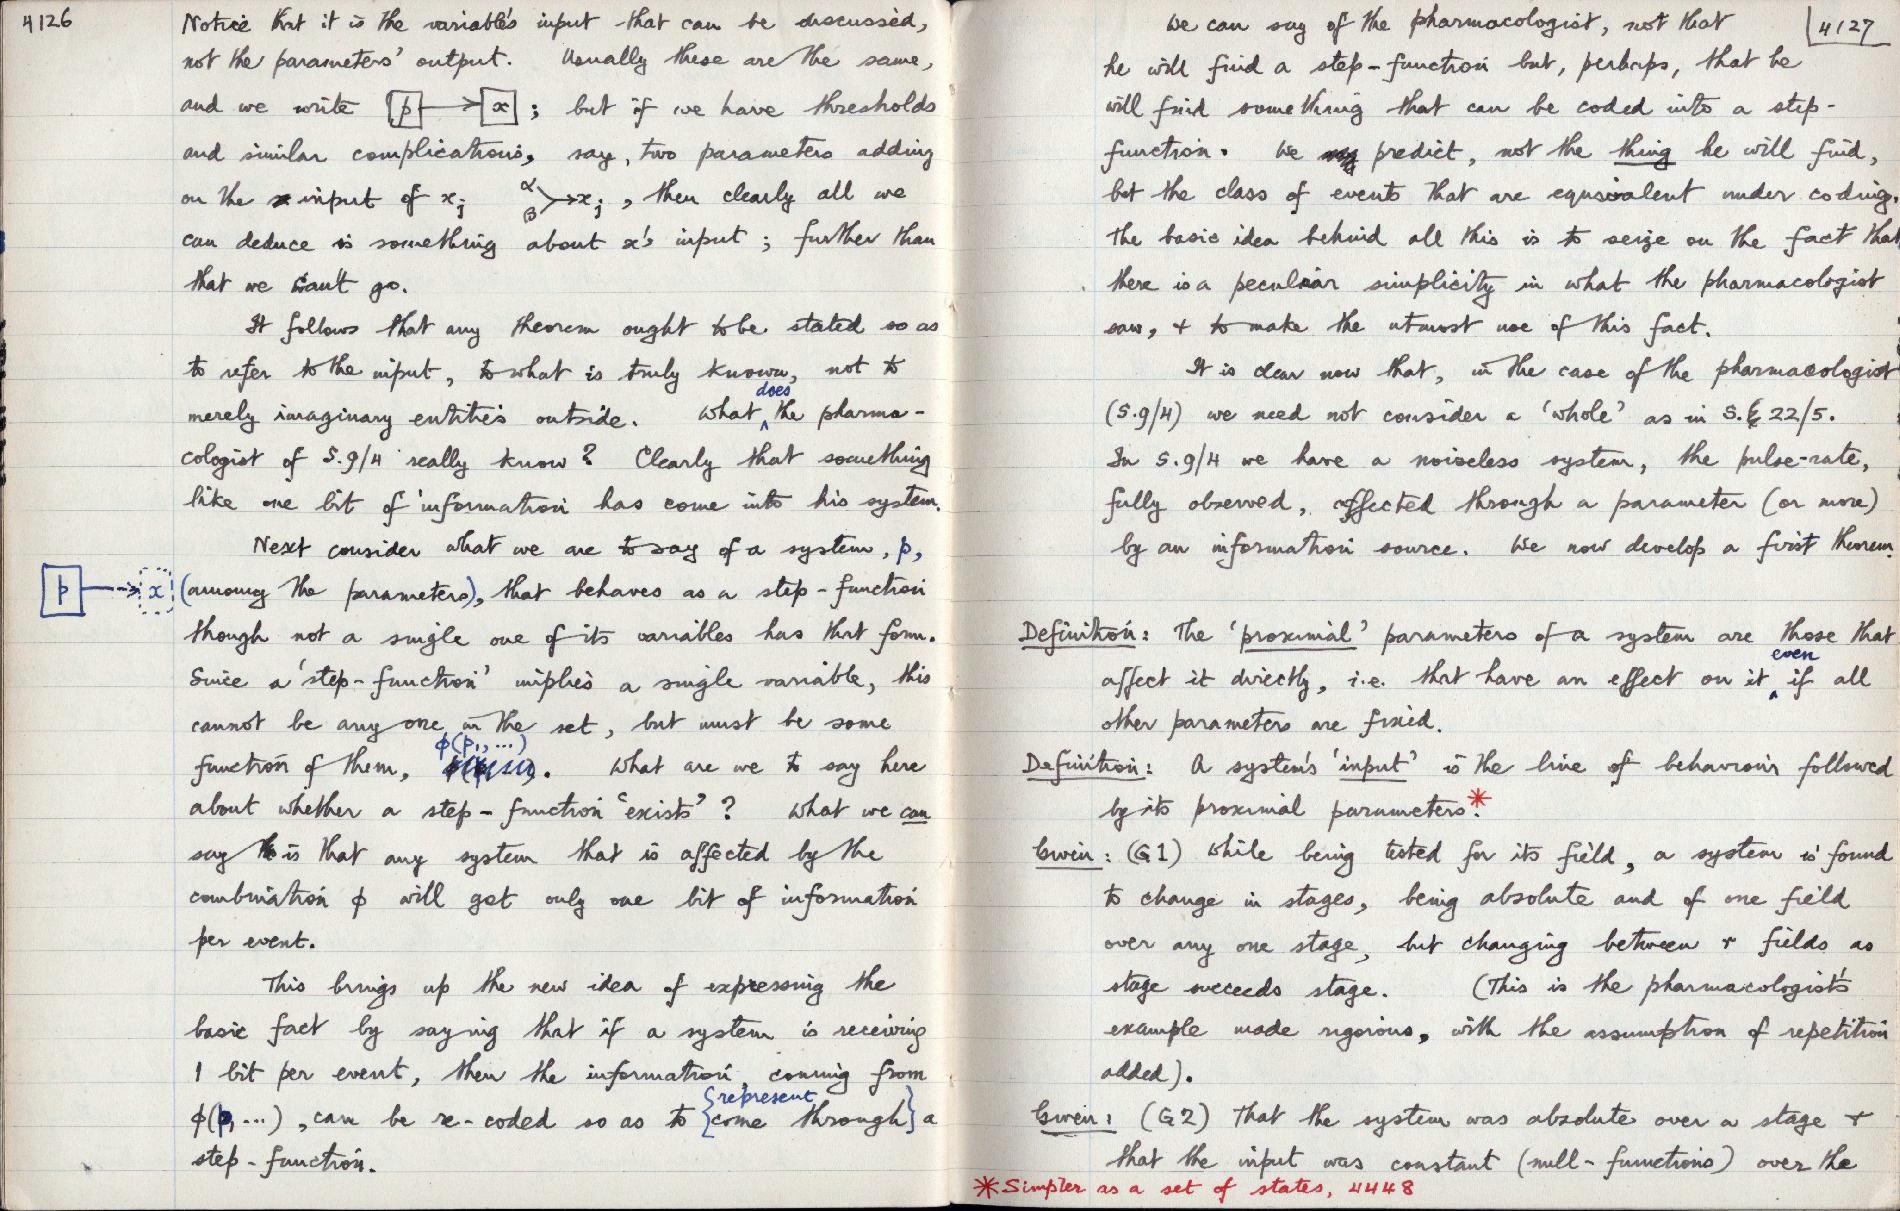 4126
Notice that it is the variable's input that can be discussed,
not the parameters' output. Usually these are the same,
and we write p → x ; but if we have thresholds
and similar complications, say, two parameters adding
on the input of xj α β → xj , then clearly all we
can deduce is something about x's input ; further than
that we can't go.
It follows that any theorem ought to be stated so as
to refer to the input, to what is truly known, not to
merely imaginary entities outside. What does the pharma-
cologist of S.9/4 really know? Clearly that something
like one bit of information has come into his system.
Next consider what we are to say of a system, p,
p → x (among the parameters), that behaves as a step-function
though not a single one of its variables has that form.
Since a 'step-function' implies a single variable, this
cannot be any one in the set, but must be some
function of them, ϕ(p1, ...). What are we to say here
about whether a step-function 'exists'? What we can
say is that any system that is affected by the
combination ϕ will get only one bit of information
per event.
This brings up the new idea of expressing the
basic fact by saying that if a system is receiving
1 bit per event, then the information, coming from
ϕ(p, ...), can be re-coded so as to {come through} represent a
step-function.
4127
We can say of the pharmacologist, not that
he will find a step-function but, perhaps, that he
will find something that can be coded into a step-
function. We predict, not the thing he will find,
but the class of events that are equivalent under coding.
The basic idea behind all this is to seize on the fact that
there is a peculiar simplicity in what the pharmacologist
saw, + to make the utmost use of this fact.
It is clear now that, in the case of the pharmacologist
(S.9/4) we need not consider a 'whole' as in S. 22/5.
In S.9/4 we have a noiseless system, the pulse-rate,
fully observed, affected through a parameter (or more)
by an information source. We now develop a first theorem.
Definition: The 'proximal' parameters of a system are those that
affect it directly, i.e. that have an effect on it even if all
other parameters are fixed.
Definition: A system's 'input' is the line of behaviour followed
by its proximal parameters.*
Given: (G1) While being tested for its field, a system is found
to change in stages, being absolute and of one field
over any one stage, but changing between r fields as
stage succeeds stage. (This is the pharmacologist's
example made rigorous, with the assumption of repetition
added).
Given: (G2) That the system was absolute over a stage +
that the input was constant (null-functions) over the
*Simpler as a set of states, 4448